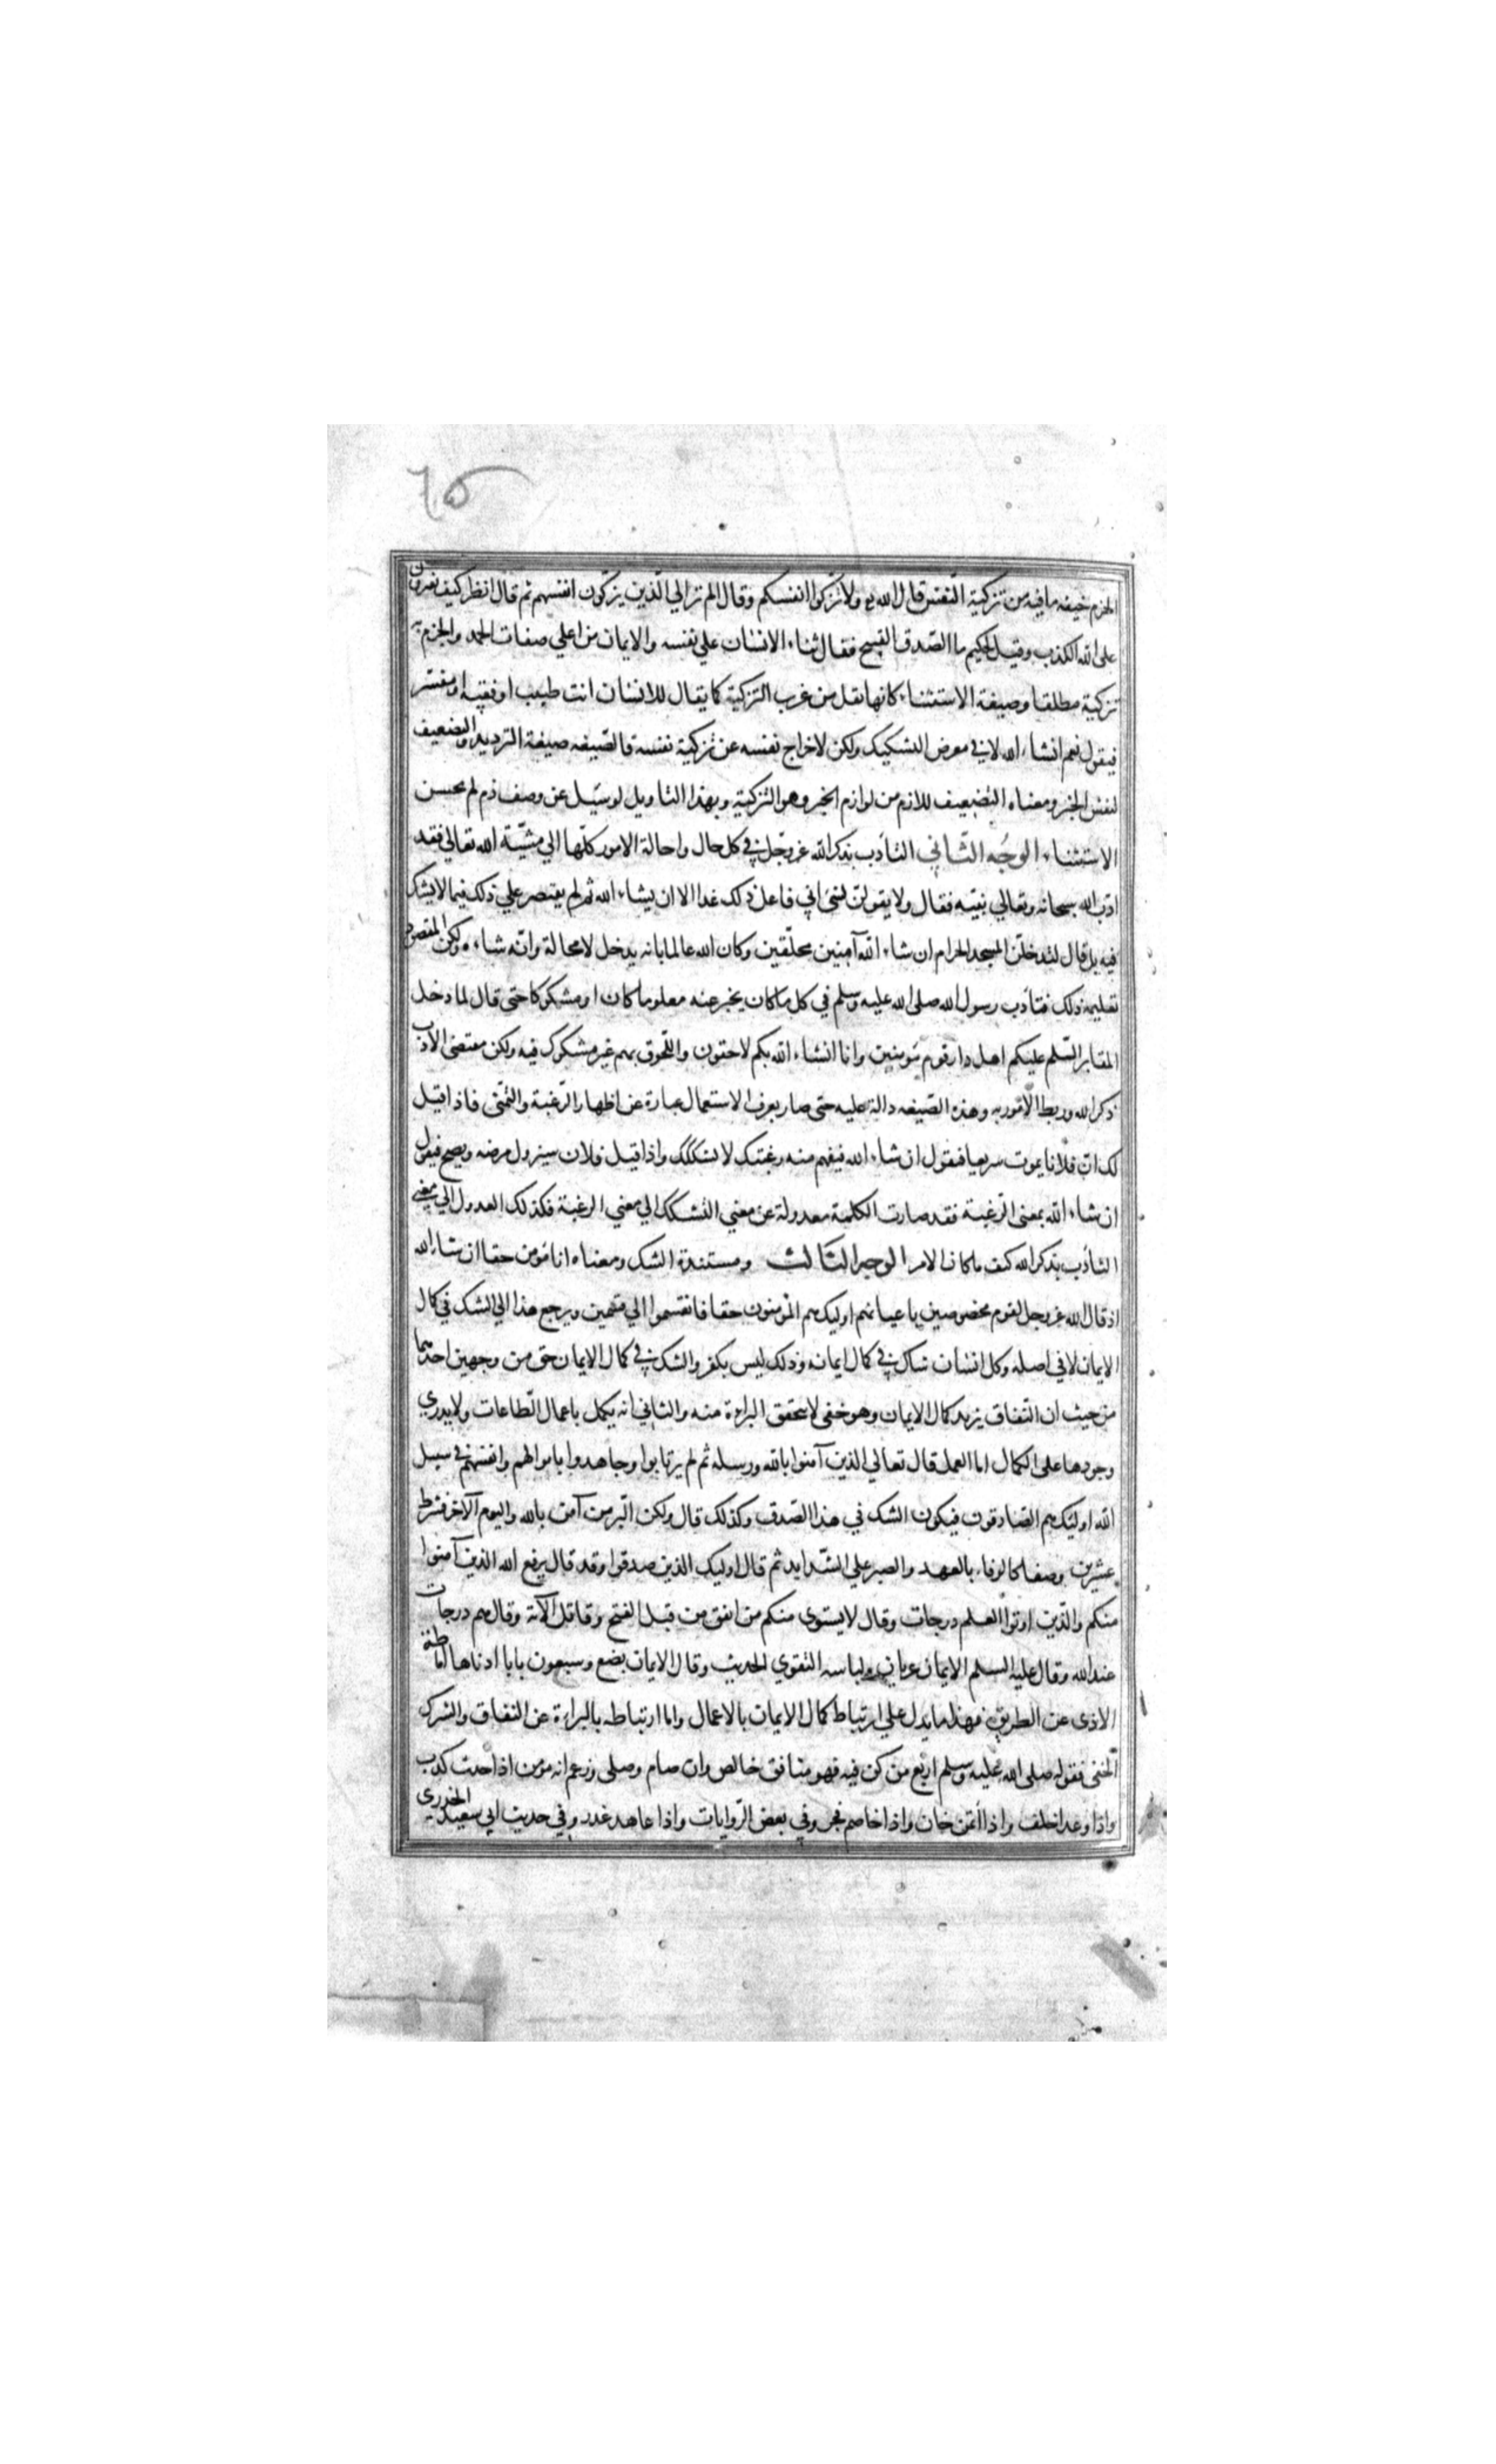 ٦٥
الجزم خيفه ما فيه من تزكية النّفس قال الله ولا تزكوا انفسكم وقال الم تر الي الّذين يزكّون انفسهم ثم قال انظر كيف يفترون
على الله الكذب وقيل لحكيم ما الصّدق القبيح فقال ثناء الانسان علي نفسه والايمان من اعلي صفات الحمد والجزم به
تزكية مطلقا وصيغة الاستثناء كانها نقل من عرب التزكية كما يقال للانسان انت طبيب او فقيه او مفسّر
فيقول نعم انشاء الله لا في معرض التشكيك ولكن لاخراج نفسه عن تزكية نفسه فالصّيغه صيغة الترديد والتضعيف
لنفس الخبر ومعناه التضعيف للازم من لوازم الخبر وهو التزكية وبهذا التاويل لو سيّل عن وصف ذم لم يحسن
الاستثناء الوجه الثّاني التأدب بذكر الله عز وجّل في كل حال واحالة الامور كلّها الي مشيّة الله تعالي فقد
ادّب الله سبحانه وتعالي نبيّه فقال ولا يقولنّ لشئ اني فاعل ذلك غدا الا ان يشاء الله ثم لم يقتصر علي ذلك فيما لا يشك
فيه بل قال لتدخلنّ المسجد الحرام ان شاء الله آمنين محلّقين وكان الله عالما بانه يدخل لا محالة وانّه شاءه ولكن المقصود
تعليمه ذلك فتأدب رسول الله صلى الله عليه وسلم في كل ما كان يخبر عنه معلوما كان او مشكوكا حتى قال لما دخل
المقابر السّلم عليكم اهل دار قوم مؤمنين وانا انشاء الله بكم لاحقون واللّحوق بهم غير مشكوك فيه ولكن مقتضى الادب
ذكر الله وربط الامّور به وهذه الصّيغه دالة عليه حتى صار بعرف الاستعمال عبارة عن اظهار الرّغبة والتّمنّى فاذا قيل
لك انّ فلانا يموت سريعا فيقول ان شاء الله فيفهم منه رغبتك لا تشكّكك واذا قيل فلان سيزول مرضه ويصح فيقول
ان شاء الله بمعنى الرّغبة فقد صارت الكلمة معدولة عن معني التشكك الي معني الرغبة فكذلك العدول الي معني
التأدب بذكر الله كيف ما كان الامر الوجه الثالث ومستنده الشك ومعناه انا مؤمن حقا ان شاء الله
اذ قال الله عز وجل لقوم مخصوصين باعيانهم اوليك هم المؤمنون حقا فانقسموا الي قسمين ويرجع هذا الي الشك في كمال
الايمان لا في اصله وكل انسان شاك في كمال ايمانه وذلك ليس بكفر والشك في كمال الايمان حق من وجهين احدهما
من حيث ان النّفاق يزيد كمال الايمان وهو خفى لا تحقق البراءة منه والثاني انه يكمل باعمال الطّاعات ولا يدري
وجودها على الكمال اما العمل قال تعالي الذين آمنوا بالله ورسله ثم لم يرتابوا وجاهدوا باموالهم وانفسهم في سبيل
الله اوليك هم الصّادقون فيكون الشك في هذا الصّدق وكذلك قال ولكن البّر من آمن بالله واليوم الآخر فشرط
عشرين وصفا كالوفاء بالعهد والصبر علي الشدايد ثم قال اوليك الذين صدقوا وقد قال يرفع الله الذين آمنوا
منكم والّذين اوتوا العلم درجات وقال لا يستوى منكم من انفق من قبل الفتح وقاتل الآية وقال هم درجات
عند الله وقال عليه السلم الايمان عريان ولباسه التقوي الحديث وقال الايمان بضع وسبعون بابا ادناها اماطة
الاذى عن الطريق فهذا ما يدل علي ارتباط كمال الايمان بالاعمال واما ارتباطه بالبراءة عن النفاق والشرك
الخفى فقوله صلى الله عليه وسلم اربع من كن فيه فهو منافق خالص وان صام وصلى وزعم انه مؤمن اذا حدث كذب
واذا وعد اخلف واذا ائتمن خان واذا خاصم فجر وفي بعض الرّوايات واذا عاهد غدر وفي حديث ابي سعيد الخدرى